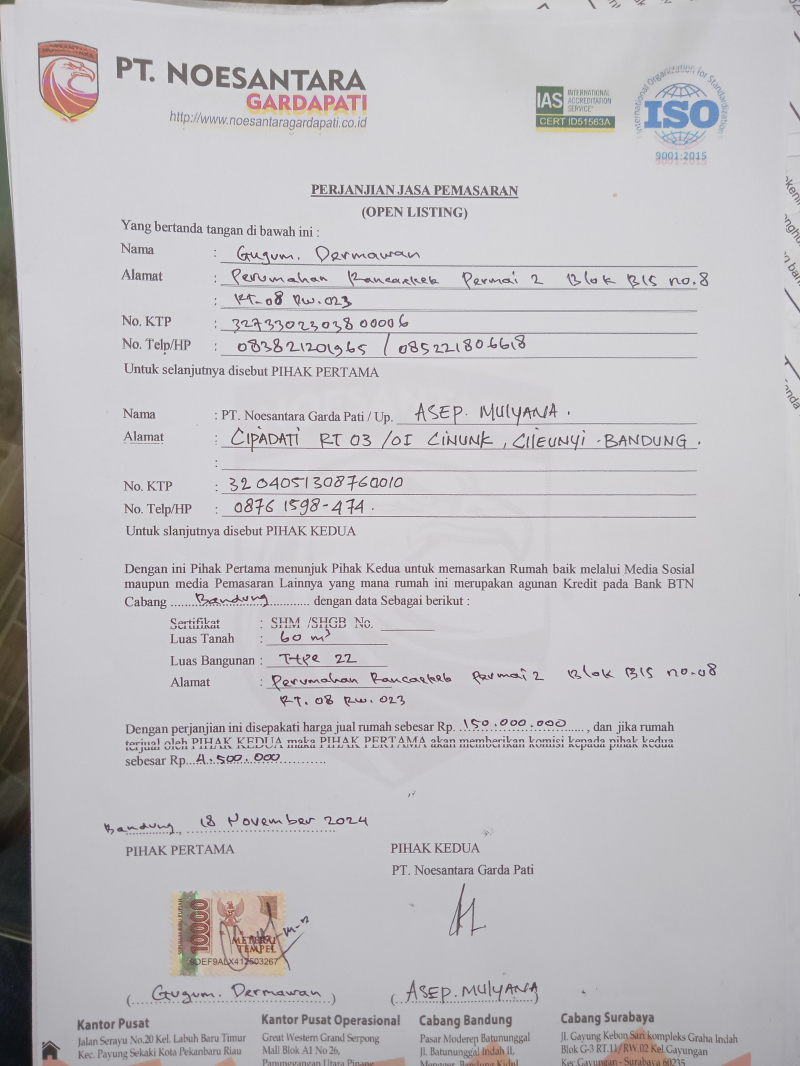 PT. NOESANTARA
GARDAPATI
http://www.noesantaragardapati.co.id
IAS INTERNATIONAL ACCREDITATION SERVICE
CERT ID51563A
International Organization for Standardization
ISO
9001:2015
PERJANJIAN JASA PEMASARAN
(OPEN LISTING)
Yang bertanda tangan di bawah ini :
Nama : Gugum. Dermawan
Alamat : Perumahan Rancaekek Permai 2 Blok B15 no.8
: RT.08 Rw.023
No. KTP : 3273302303800006
No. Telp/HP : 083821201965 / 085221806618
Untuk selanjutnya disebut PIHAK PERTAMA
Nama : PT. Noesantara Garda Pati / Up. ASEP. MULYANA.
Alamat : CIPADATI RT 03 /01 CINUNK, CILEUNYI - BANDUNG.
:
No. KTP : 3204051308760010
No. Telp/HP : 0876 1598-474.
Untuk slanjutnya disebut PIHAK KEDUA
Dengan ini Pihak Pertama menunjuk Pihak Kedua untuk memasarkan Rumah baik melalui Media Sosial
maupun media Pemasaran Lainnya yang mana rumah ini merupakan agunan Kredit pada Bank BTN
Cabang ......Bandung............ dengan data Sebagai berikut :
Sertifikat : SHM /SHGB No. ________
Luas Tanah : 60 m²
Luas Bangunan : Type 22
Alamat : Perumahan Rancaekek Permai 2 Blok B15 no.08
RT. 08 Rw. 023
Dengan perjanjian ini disepakati harga jual rumah sebesar Rp. 150.000.000 ....., dan jika rumah
terjual oleh PIHAK KEDUA maka PIHAK PERTAMA akan memberikan komisi kepada pihak kedua
sebesar Rp...4.500.000...........
Bandung, 18 November 2024
PIHAK PERTAMA PIHAK KEDUA
PT. Noesantara Garda Pati
10000
METERAI
TEMPEL
9DEF9ALX412503267
(Gugum. Dermawan) (ASEP. MULYANA)
Kantor Pusat
Jalan Serayu No.20 Kel. Labuh Baru Timur
Kec. Payung Sekaki Kota Pekanbaru Riau
Kantor Pusat Operasional
Great Western Grand Serpong
Mall Blok A1 No 26,
Panunggangan Utara Pinang
Cabang Bandung
Pasar Moderen Batununggal
Jl. Batununggal Indah II,
Mengger, Bandung Kidul
Cabang Surabaya
Jl. Gayung Kebon Sari kompleks Graha Indah
Blok G-3 RT.11/RW 02 Kel.Gayungan
Kec Gayungan - Surabaya 60235